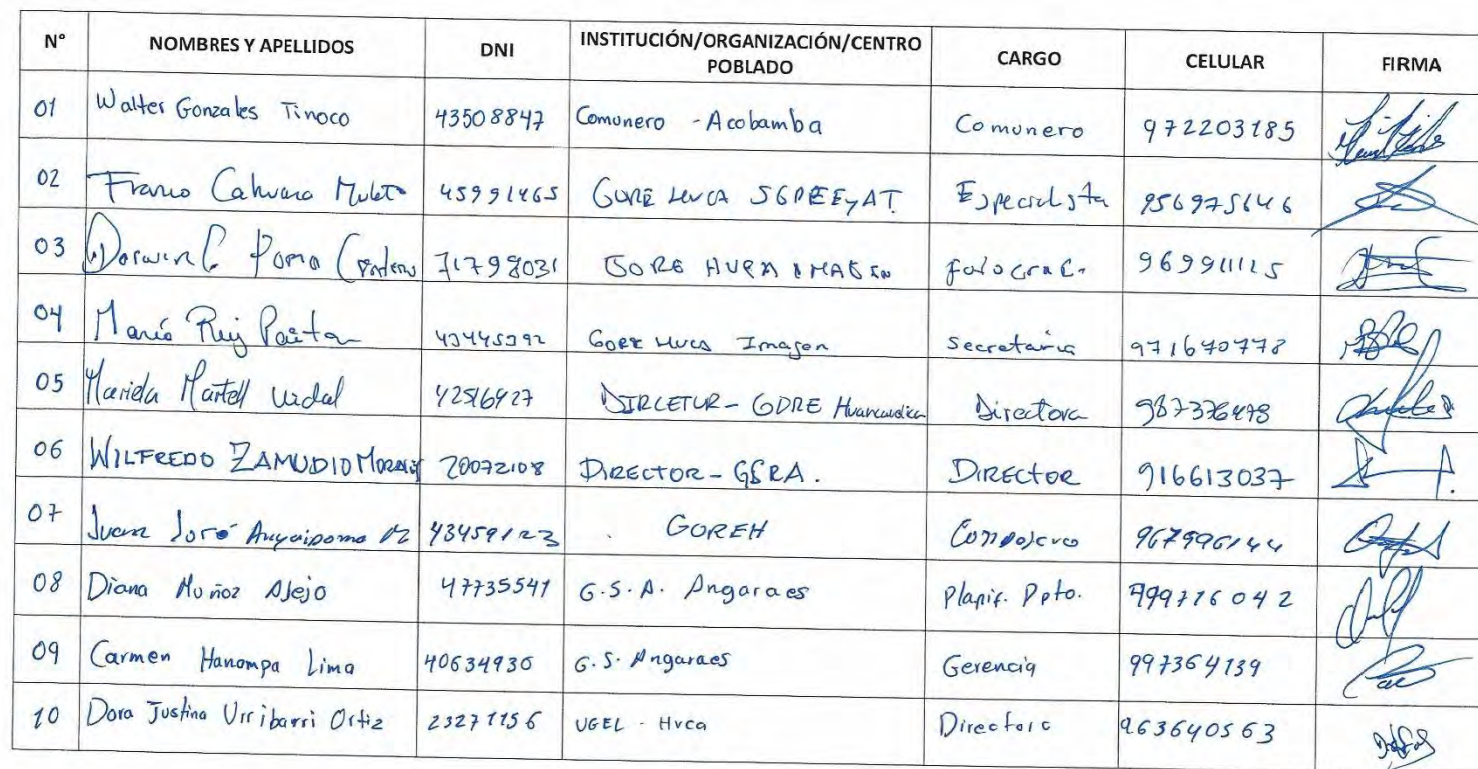 N° NOMBRES Y APELLIDOS DNI INSTITUCIÓN/ORGANIZACIÓN/CENTRO POBLADO CARGO CELULAR FIRMA
01 Walter Gonzales Tinoco 43508847 Comunero - Acobamba Comunero 972203185
02 Franco 45991465 GORE HVCA SGPEEyAT Especialista 956975646
03 Poma 71798031 GORE 969911125
04 Ruiz 43445392 GORE HVCA Imagen Secretaria 971640778
05 Mariela Martell Vidal 42516427 DIRCETUR - GORE Huancavelica Directora 987376478
06 WILFREDO ZAMUDIO 20072108 DIRECTOR - GSRA. DIRECTOR 916613037
07 Juan José 43459123 GOREH 967996144
08 Diana Muñoz Alejo 47735541 G.S.A. Angaraes Planif. Ppto. 999716042
09 Carmen Hanampa Lima 40634936 G.S. Angaraes Gerencia 997364139
10 Dora Justina Urribarri Ortiz 23271156 UGEL - Hvca Directora 963640563